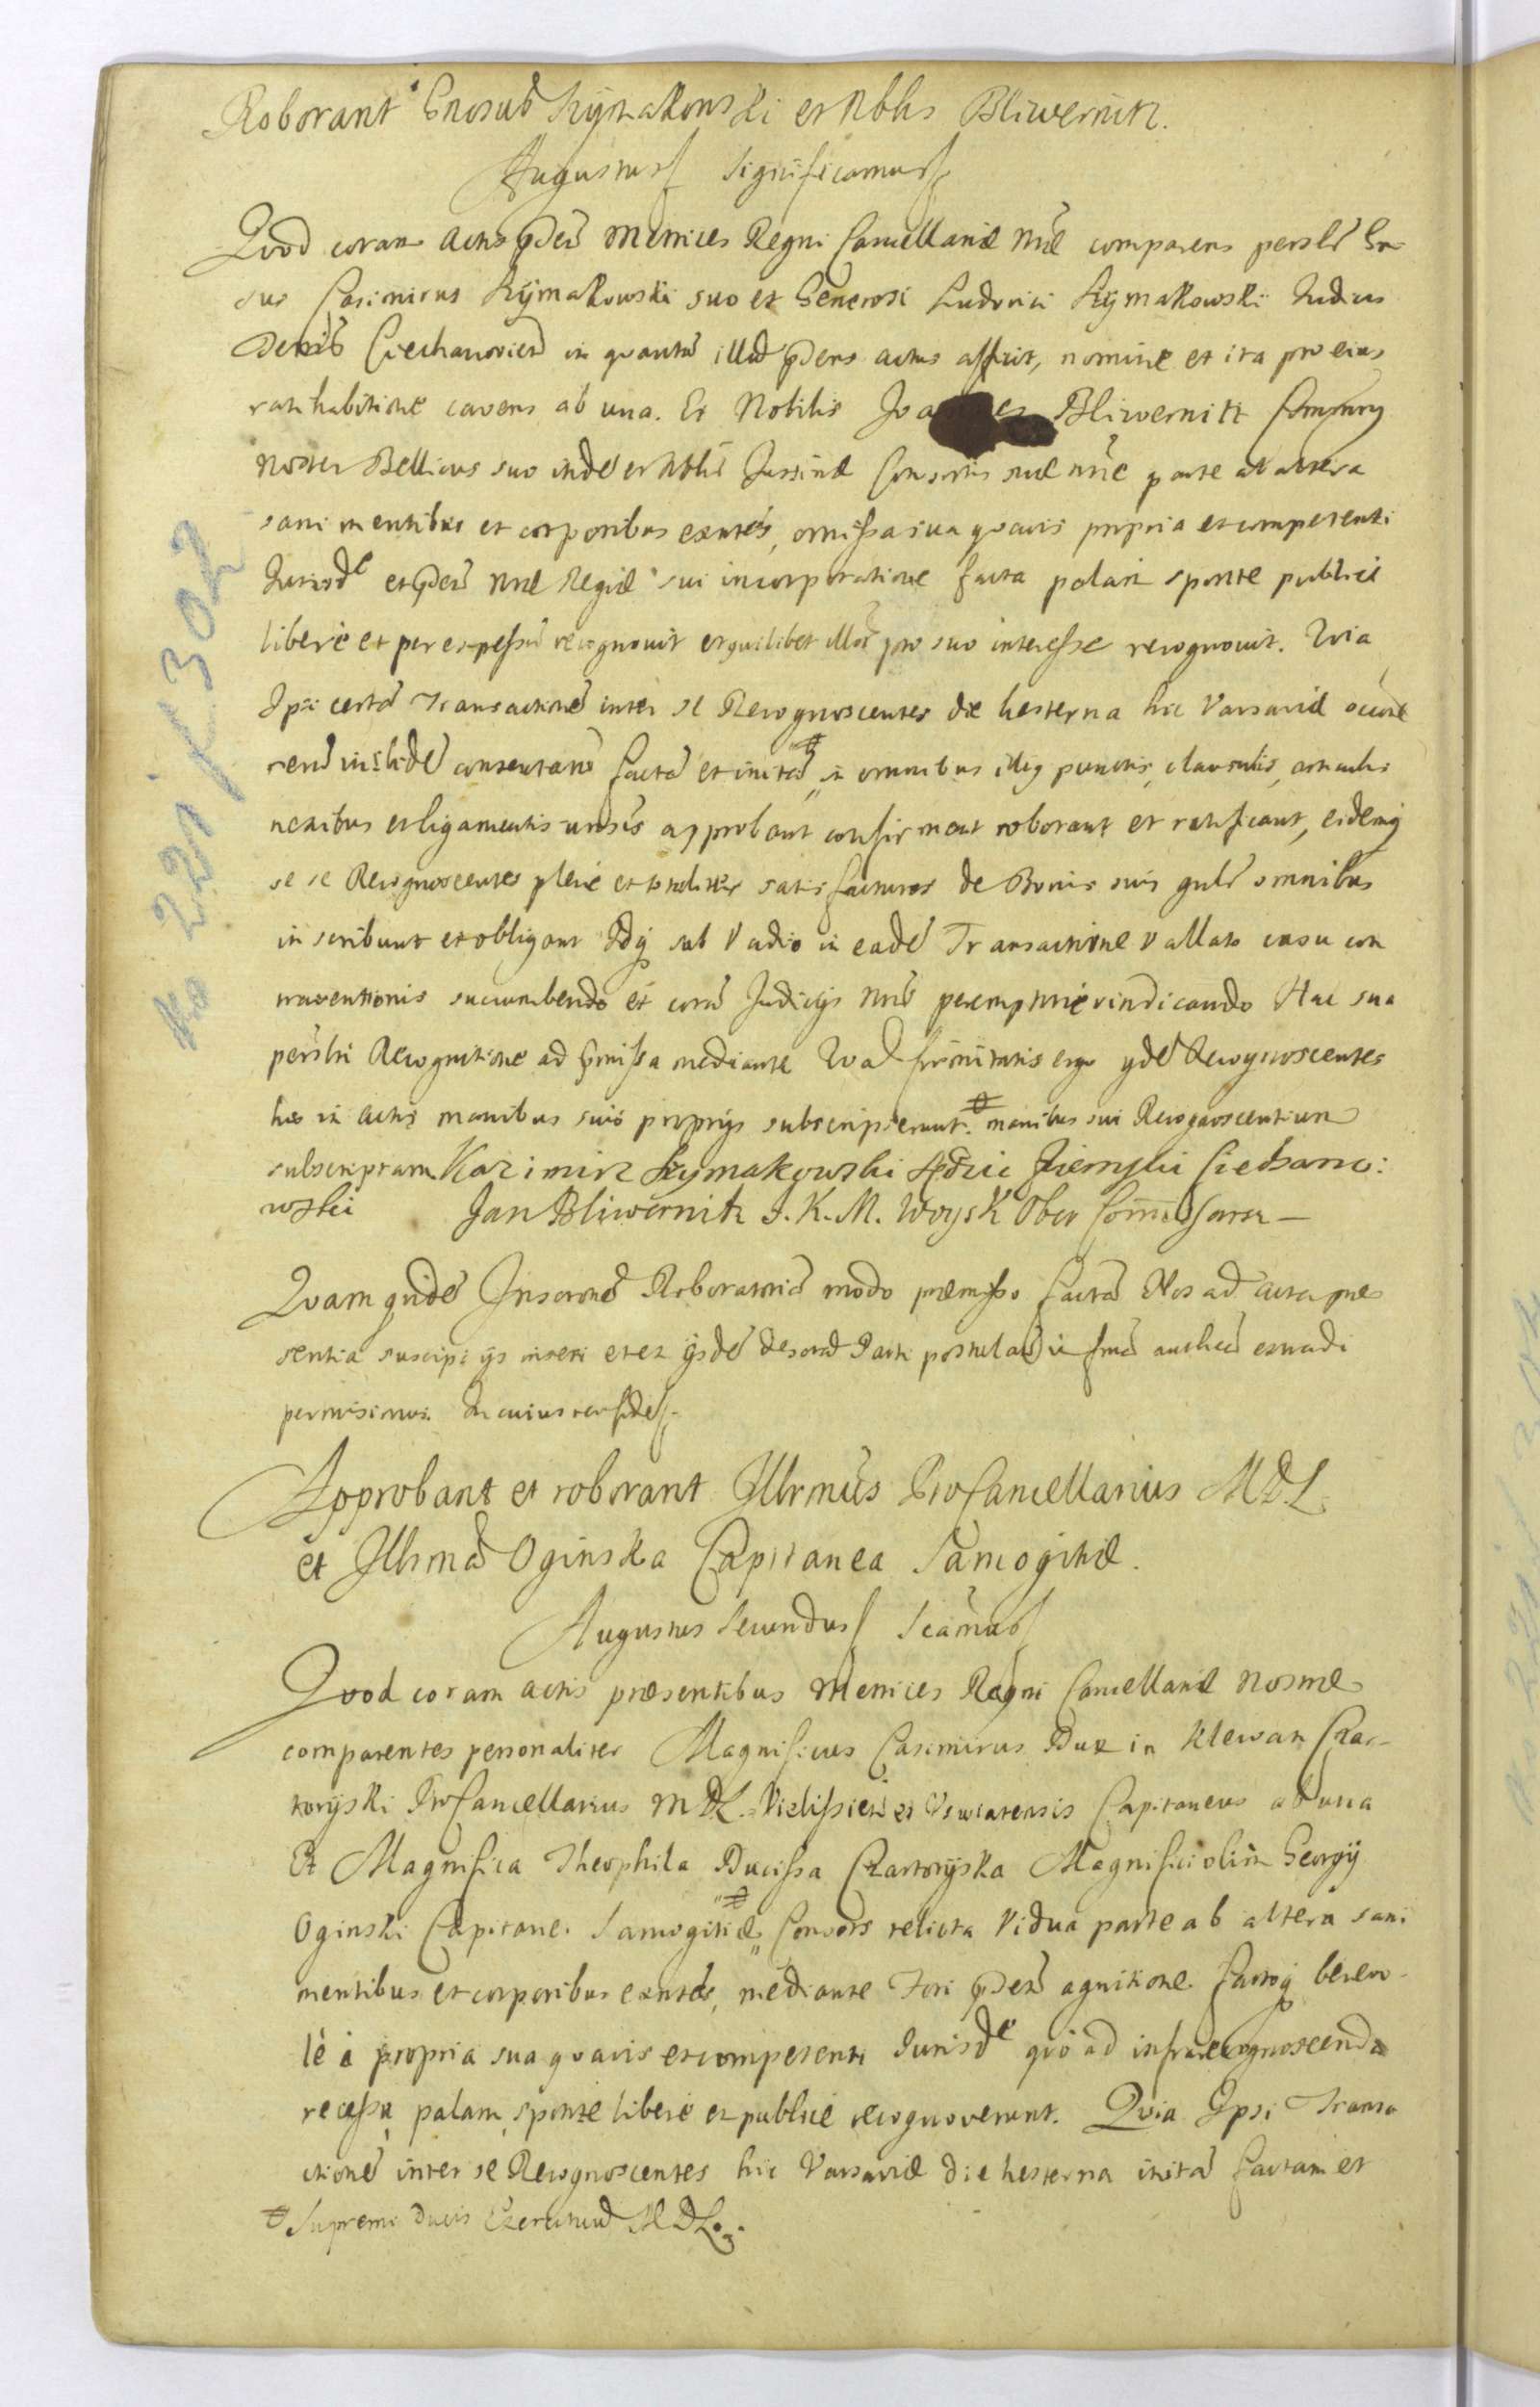 Roborant Gnosus Kijmakowski et Nblis Bliwernitz.
Augustus significamus
Quod coram Actis pntibus Metrices Regni Cancellariæ nræ comparens persler Gn
sus Casimirus Kijmakowski suo et Generosi Ludovici Kijmakowski Judicis
Ciechanovien in quantum illud pdens actus afficit, nomine et ita pro eius
ratihabitione cavens ab una. Et Nobilis Joannes Bliwernitz
noster Bellicus suo inde et Nblis Consortis suæ nne parte ab altera
sani mentibus et corporibus exntes, omissa sua quavis propria et competenti
Jurisdne et nræ Regiæ sui incorporatione facta palam sponte publice
libere et per expressum recognovit et quilibet illor pro suo interesse recognovit. Quia
Ipsi certam Transactionem inter se Recognoscentes die hesterna hic Varsaviæ
factam et initam in omnibus illius punctis, clausulis, articulis
nexibus et ligamentis unsis approbant confirmant roborant et ratificant, eidemq
se se Recognoscentes plene et totaliter satisfacturos de Bonis suis gnlr omnibus
inscribunt et obligant Idq sub Vadio in eadem Transactione vallato casu con
traventionis succumbendo et coram Judicijs nris peremptorie vindicando Hac sua
persli Recognitione ad pmissa mediante Quod firmitatis ergo ijdem Recognoscentes
hic in Actis manibus suis proprijs subscripserunt. # manibus sui Recognoscentium
subscriptam Kazimirz Kymakowski Sędzic Ziemski Ciechano:
wski Jan Bliwernitz J. K. M. Woysk Ober Comissarz —
Quam quidem Inscronem Roboratoriam modo præmisso factam Nos ad acta præ
sentia suscipi ijs inseri et ex ijsdem desord Parti postulanti in frma authen extradi
permisimus. In cuius rei fidem
Approbant et roborant Illrmus ProCancellarius M.D.L.
et Illrma Oginska Capitanea Samogitiæ.
Augustus Secundus Scamus
Quod coram actis præsentibus Metrices Regni Cancellariæ Nostræ
comparentes personaliter Magnificus Casimirus Dux in Klewan Czar-
toryski ProCancellarius MDL. Vielissien et Uswiatensis Capitaneus ab una
Et Magnifica Theophila Ducissa Czartoryska Magnifici olim Georgij
Oginski Capitanei Samogitiæ # Consors relicta Vidua parte ab altera sani
mentibus et corporibus exntes, mediante Fori pdein agnitione factoq benevo-
lè à propria sua quavis et competenti Jurisdne quo ad infra recognoscenda
recessu, palam, sponte libere et publice recognoverunt. Quia Ipsi Transa
ctionem inter se Recognoscentes hic Varsaviæ die hesterna initam factam et
# Supremi Ducis Exercituum M D L.
No 221 k 302